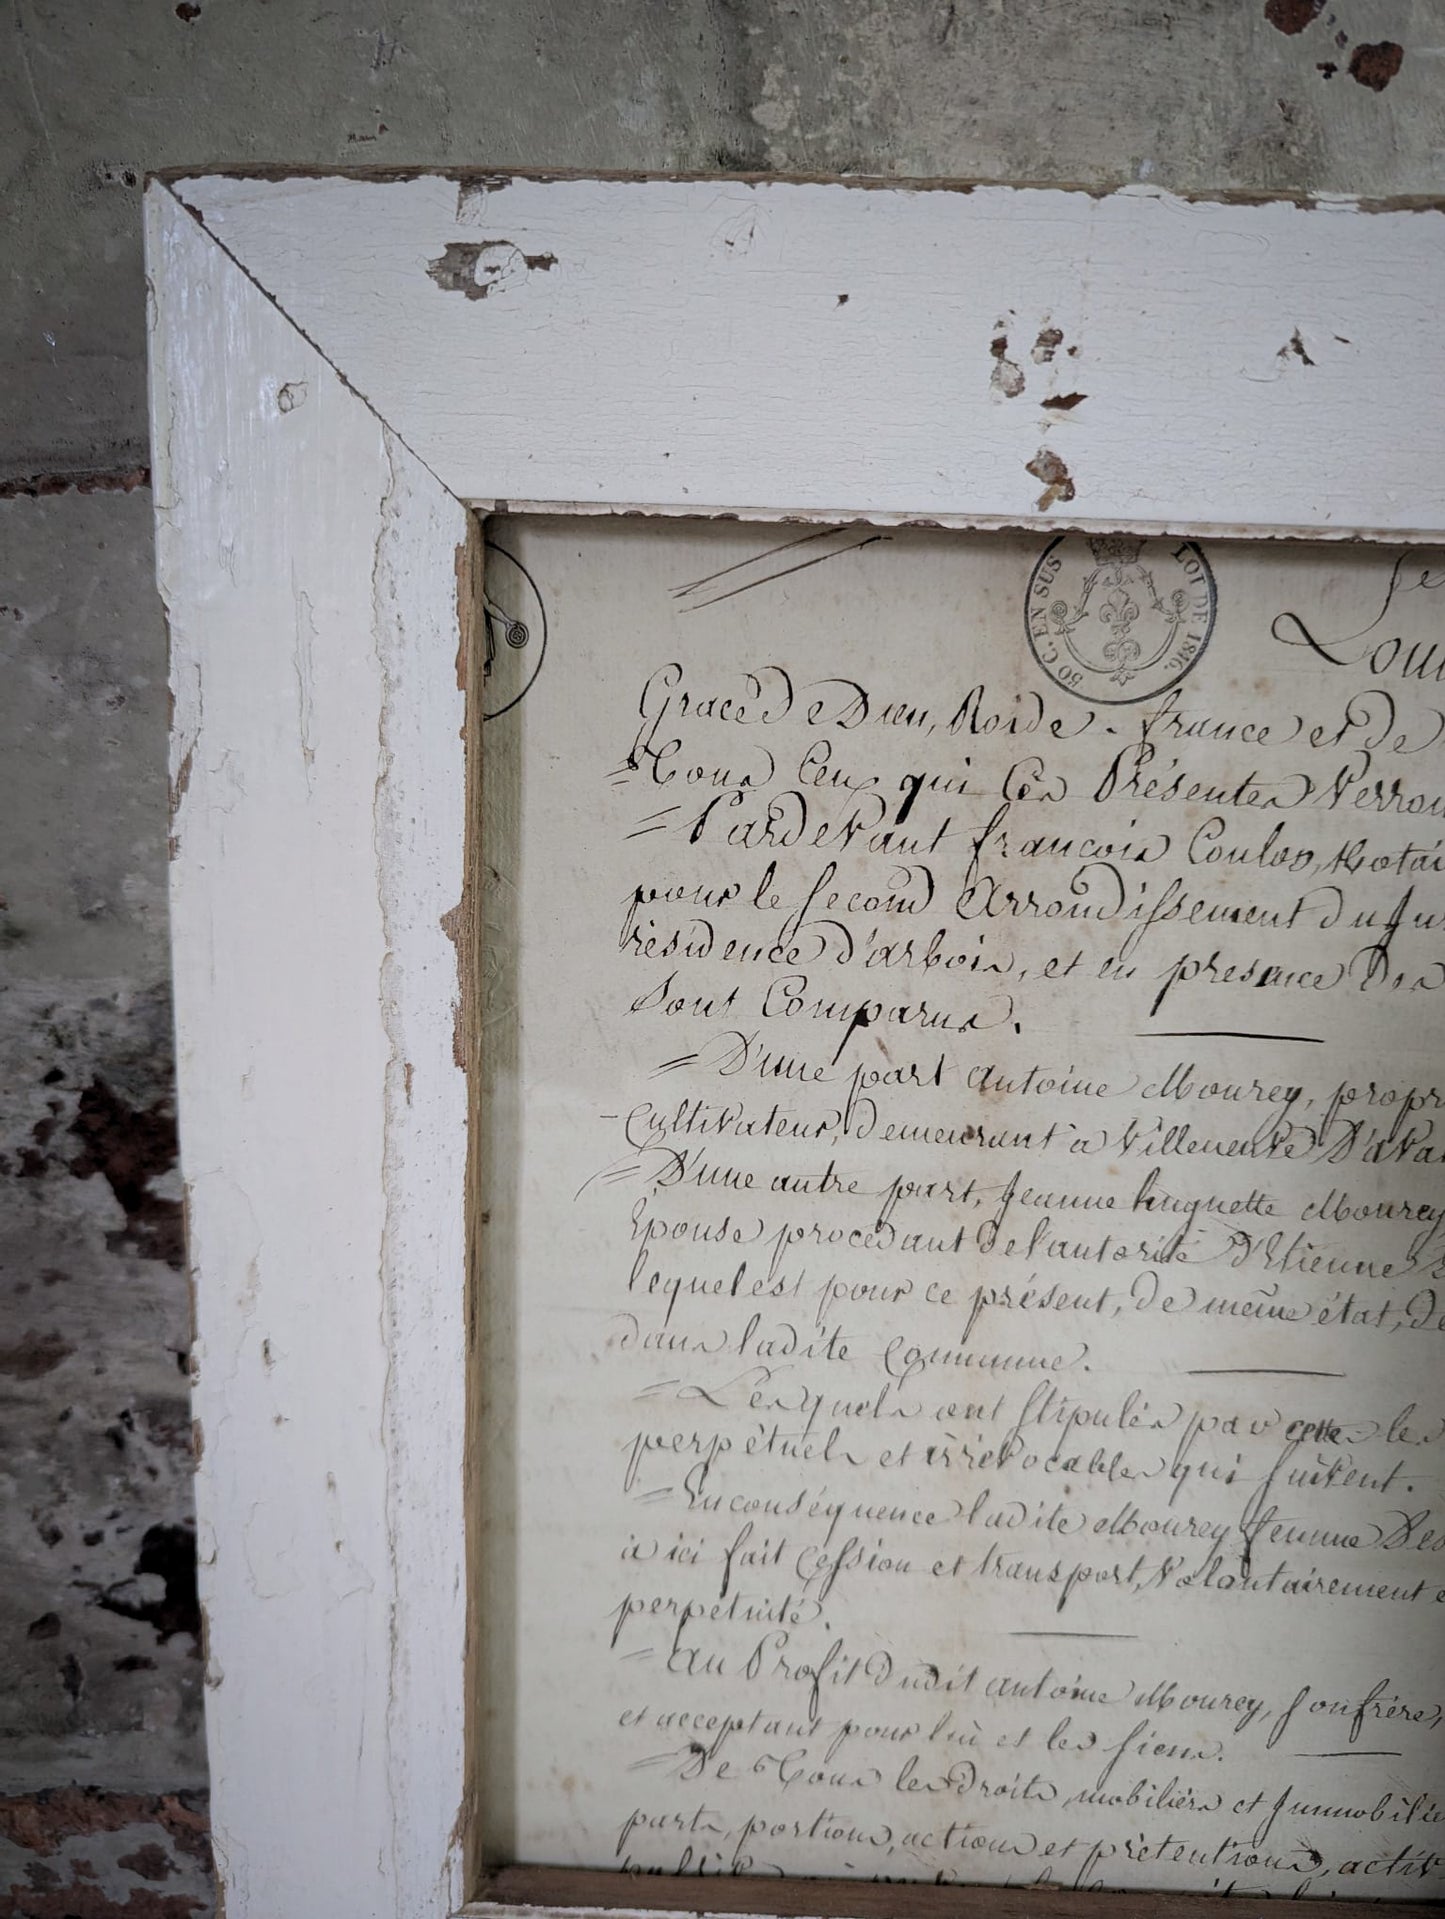 50 C. EN SUS LOI DE 1816.
Grace de Dieu, Roi de france et de
Tous Ceux qui Ces Présentes Verron
Pardevant françois Coulon, Notai
pour le second Arrondissement du Ju
résidence d'arbois, et en presence des
Sont Comparus.
D'une part antoine Mourey, propri
Cultivateur, demeurant a Villeneuve D'ava
D'une autre part, Jeanne huguette Mourey
Epouse procedant de l'autorité d'Etienne
lequel est pour ce présent, de même état, de
dans ladite Commune.
Lesquels ont stipulés par cette les
perpétuels et irrévocables qui suivent.
En conséquence ladite Mourey femme Des
a ici fait Cession et transport, Volontairement e
perpetuité.
au Profit dudit antoine Mourey, son frère,
et acceptant pour lui et les siens.
De Tous les droits, mobiliers et Immobilie
parts, portions, actions et prétentions, activ